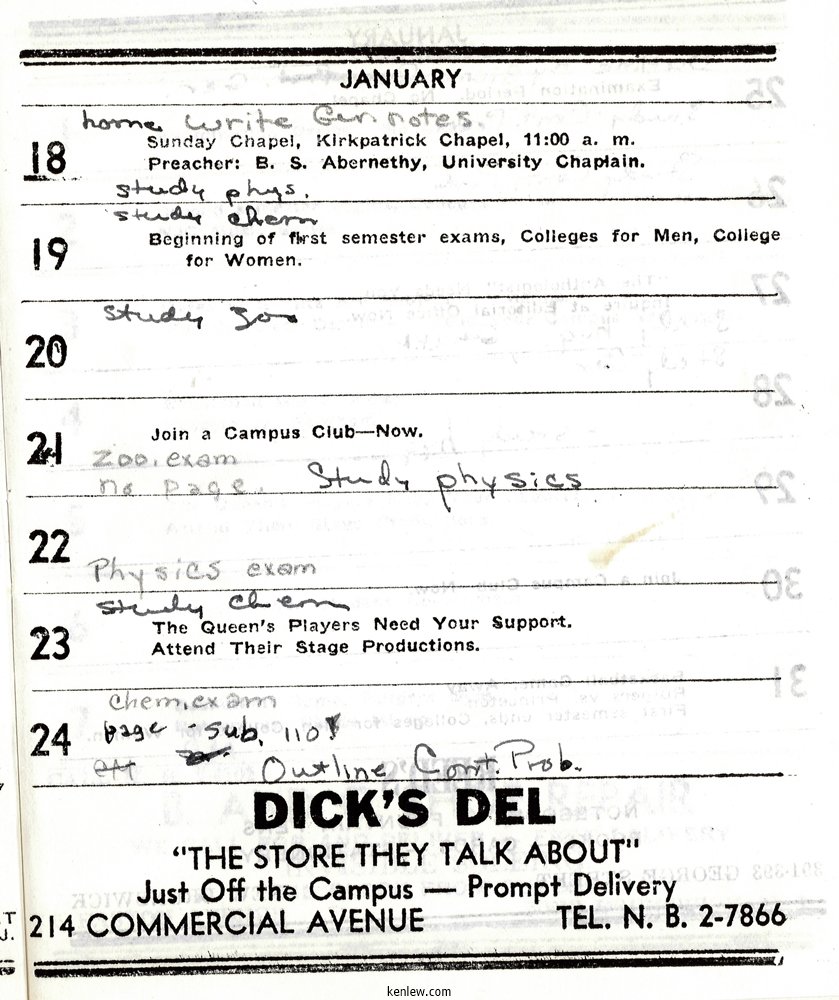 JANUARY
home write Ger. notes.
18
Sunday Chapel, Kirkpatrick Chapel, 11:00 a. m.
Preacher: B. S. Abernethy, University Chaplain.
study phys.
study chem
19
Beginning of first semester exams, Colleges for Men, College
for Women.
study zoo
20
21
Join a Campus Club—Now.
zoo. exam
no page. Study physics
22
Physics exam
study chem
23
The Queen's Players Need Your Support.
Attend Their Stage Productions.
chem. exam
24
page - Sub. 110
Outline Cont. Prob.
DICK'S DEL
"THE STORE THEY TALK ABOUT"
Just Off the Campus — Prompt Delivery
214 COMMERCIAL AVENUE TEL. N. B. 2-7866
kenlew.com